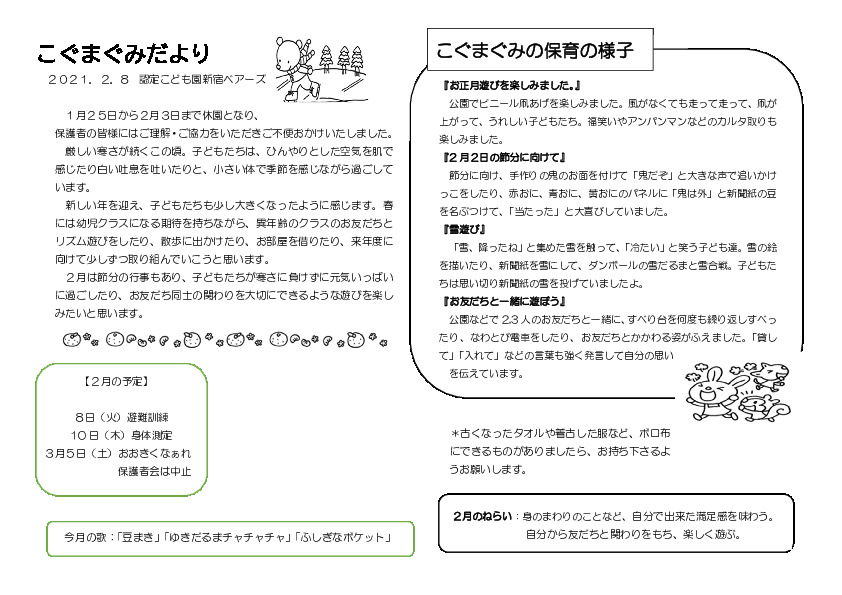 こぐまぐみだより
２０２１．２．８　認定こども園新宿ベアーズ
１月２５日から２月３日まで休園となり、
保護者の皆様にはご理解・ご協力をいただきご不便おかけいたしました。
厳しい寒さが続くこの頃。子どもたちは、ひんやりとした空気を肌で
感じたり白い吐息を吐いたりと、小さい体で季節を感じながら過ごして
います。
新しい年を迎え、子どもたちも少し大きくなったように感じます。春
には幼児クラスになる期待を持ちながら、異年齢のクラスのお友だちと
リズム遊びをしたり、散歩に出かけたり、お部屋を借りたり、来年度に
向けて少しずつ取り組んでいこうと思います。
２月は節分の行事もあり、子どもたちが寒さに負けずに元気いっぱい
に過ごしたり、お友だち同士の関わりを大切にできるような遊びを楽し
みたいと思います。
【２月の予定】
８日（火）避難訓練
１０日（木）身体測定
３月５日（土）おおきくなぁれ
保護者会は中止
今月の歌：「豆まき」「ゆきだるまチャチャチャ」「ふしぎなポケット」
こぐまぐみの保育の様子
『お正月遊びを楽しみました。』
公園でビニール凧あげを楽しみました。風がなくても走って走って、凧が
上がって、うれしい子どもたち。福笑いやアンパンマンなどのカルタ取りも
楽しみました。
『２月２日の節分に向けて』
節分に向け、手作りの鬼のお面を付けて「鬼だぞ」と大きな声で追いかけ
っこをしたり、赤おに、青おに、黄おにのパネルに「鬼は外」と新聞紙の豆
を名ぶつけて、「当たった」と大喜びしていました。
『雪遊び』
「雪、降ったね」と集めた雪を触って、「冷たい」と笑う子ども達。雪の絵
を描いたり、新聞紙を雪にして、ダンボールの雪だるまと雪合戦。子どもた
ちは思い切り新聞紙の雪を投げていましたよ。
『お友だちと一緒に遊ぼう』
公園などで2.3人のお友だちと一緒に、すべり台を何度も繰り返しすべっ
たり、なわとび電車をしたり、お友だちとかかわる姿がふえました。「貸し
て」「入れて」などの言葉も強く発言して自分の思い
を伝えています。
＊古くなったタオルや着古した服など、ボロ布
にできるものがありましたら、お持ち下さるよ
うお願いします。
２月のねらい：身のまわりのことなど、自分で出来た満足感を味わう。
自分から友だちと関わりをもち、楽しく遊ぶ。